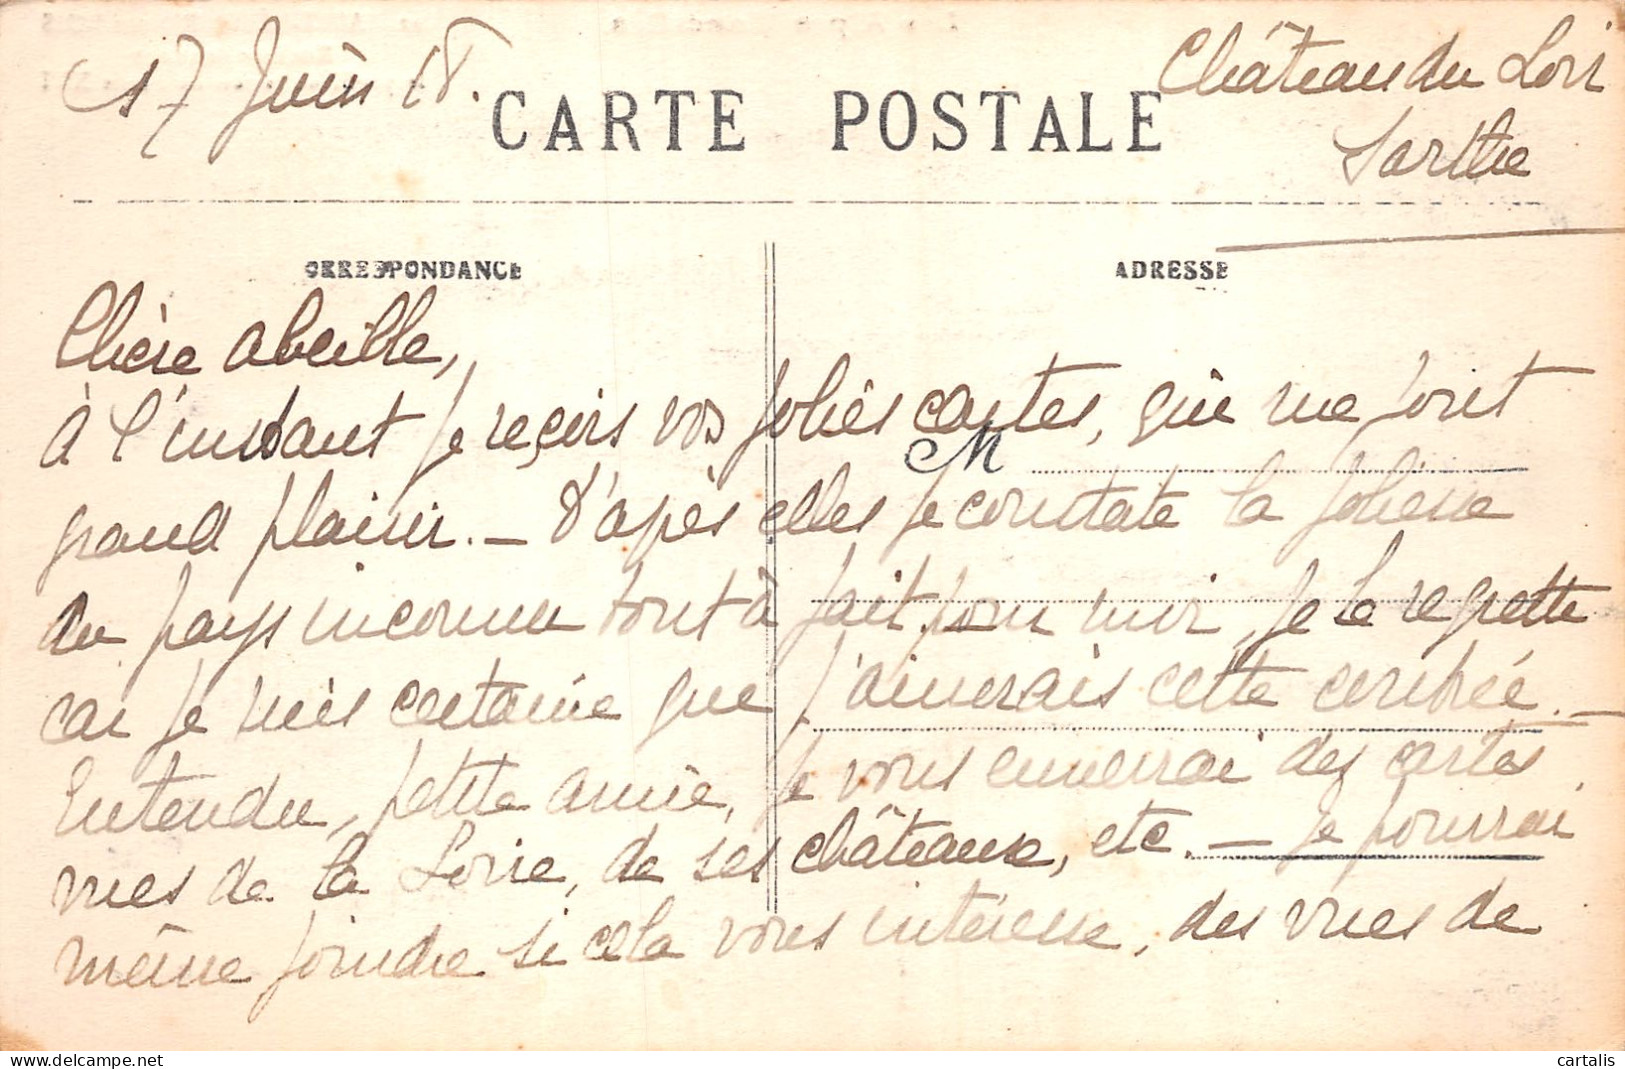 17 Juin 18.
Château du Loir
Sarthe
CARTE POSTALE
CORRESPONDANCE
ADRESSE
Chère abeille,
à l'instant je reçois vos jolies cartes, qui me font
M
grand plaisir. — D'après elles je constate la joliesse
du pays inconnu tout à fait pour moi, je le regrette
car je suis certaine que j'aimerais cette contrée. —
Entendu, petite amie, je vous enverrai des cartes
vues de la Loire, de ses châteaux, etc. — Je pourrai
même joindre si cela vous intéresse, des vues de
cartalis
delcampe.net